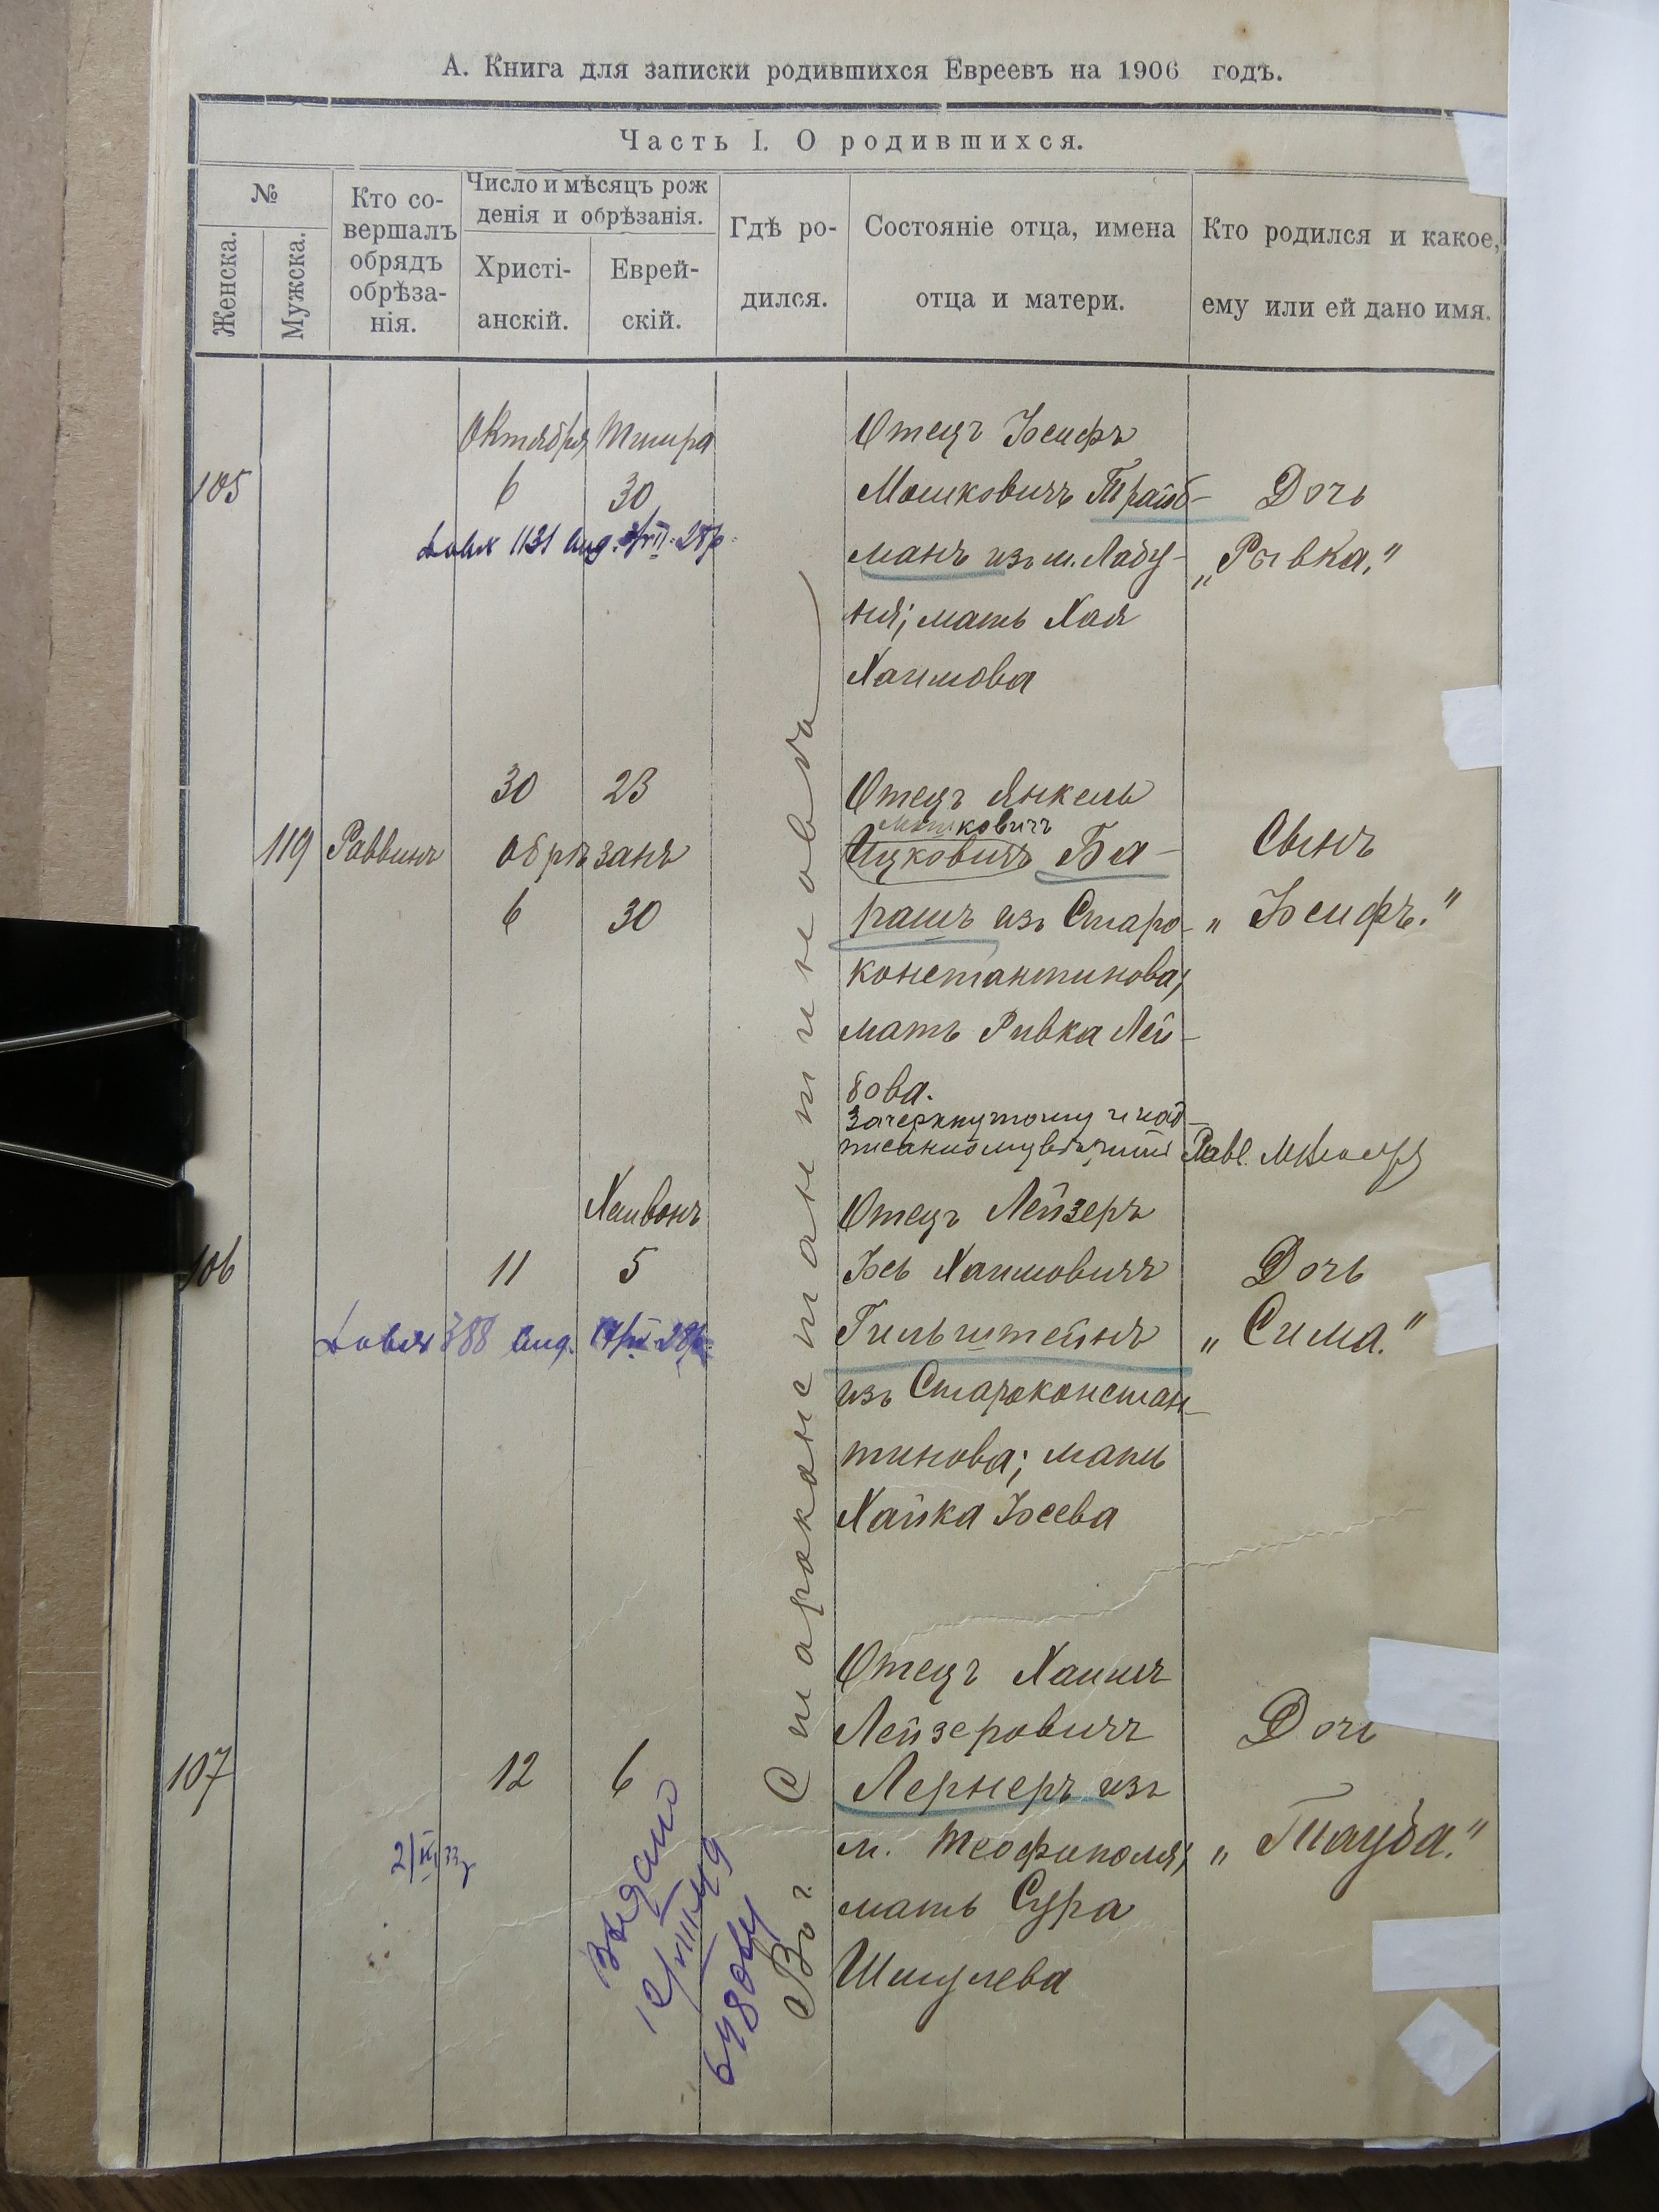 А. Книга для записки родившихся Евреевъ на 1906 годъ.
Часть I. О родившихся.
№
Женска.
Мужска.
Кто со-
вершалъ
обрядъ
обрѣза-
нія.
Число и мѣсяцъ рож
денія и обрѣзанія.
Христі-
анскій.
Еврей-
скій.
Гдѣ ро-
дился.
Состояніе отца, имена
отца и матери.
Кто родился и какое,
ему или ей дано имя.
Октября Тишра
105
6 30
Отецъ Іосифъ
Мошковичъ Трайб-
манъ изъ м. Лабу-
ня; мать Хая
Хаимова
Дочь
„Рывка."
30 23
119 Раввинъ обрѣзанъ
6 30
Отецъ Янкель
Мошковичъ
Ицковичъ Ба-
рашъ изъ Старо-
константинова;
мать Ривка Лей-
бова.
Зачеркнутому и над-
писанному вѣрить
Сынъ
„Іосифъ."
Хешвонъ
106
11 5
Отецъ Лейзеръ
Іось Хаимовичъ
Гильштейнъ
изъ Староконстан-
тинова; мать
Хайка Іосева
Дочь
„Сима."
107
12 6
Отецъ Хаимъ
Лейзеровичъ
Лернеръ изъ
м. Теофиполя;
мать Сура
Шмулева
Дочь
„Тауба."
Выдано
Во г. Староконстантиновѣ